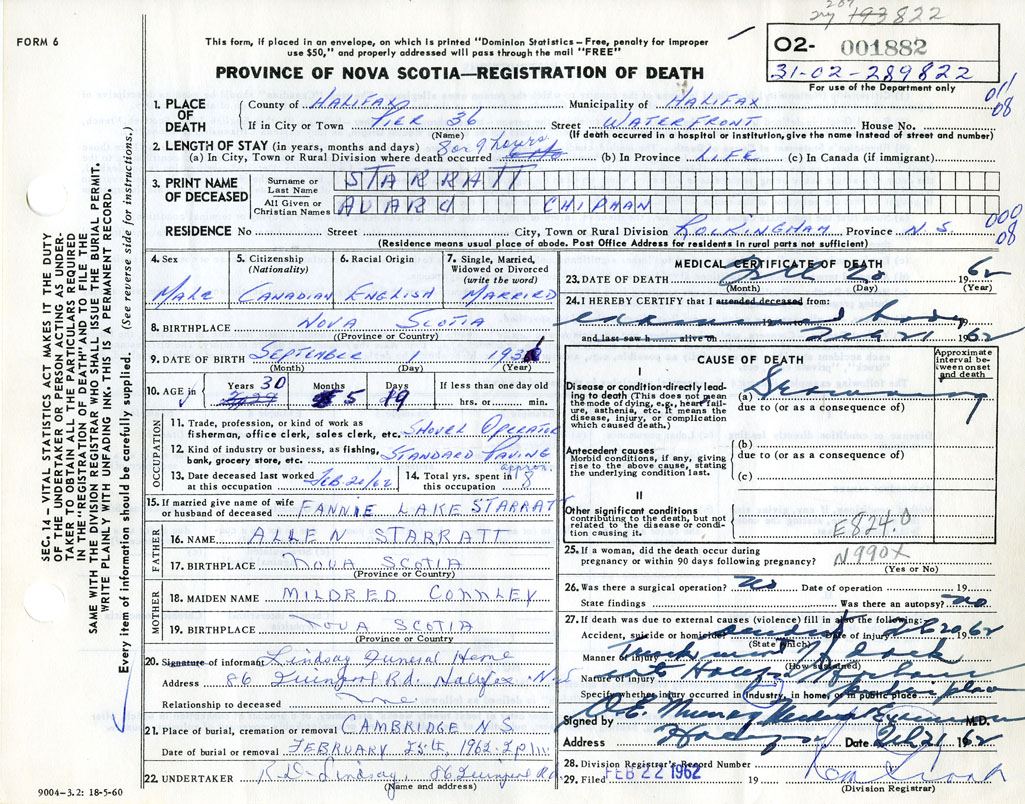 207
193822
FORM 6
This form, if placed in an envelope, on which is printed "Dominion Statistics – Free, penalty for improper
use $50," and properly addressed will pass through the mail "FREE"
O2- 001882
31-02-289822
For use of the Department only
PROVINCE OF NOVA SCOTIA—REGISTRATION OF DEATH
011
08
1. PLACE OF DEATH
County of HALIFAX Municipality of HALIFAX
If in City or Town PIER 36 Street WATERFRONT House No.
(Name) (If death occurred in a hospital or institution, give the name instead of street and number)
2. LENGTH OF STAY (in years, months and days) 8 or 9 hours
(a) In City, Town or Rural Division where death occurred (b) In Province LIFE (c) In Canada (if immigrant)
3. PRINT NAME OF DECEASED
Surname or Last Name STARRATT
All Given or Christian Names AVARD CHIPMAN
000
08
RESIDENCE No Street City, Town or Rural Division ROCKINGHAM Province N.S.
(Residence means usual place of abode. Post Office Address for residents in rural parts not sufficient)
SEC. 14 – VITAL STATISTICS ACT MAKES IT THE DUTY
OF THE UNDERTAKER OR PERSON ACTING AS UNDER-
TAKER TO OBTAIN ALL THE PARTICULARS REQUIRED
IN THE "REGISTRATION OF DEATH" AND TO FILE THE
SAME WITH THE DIVISION REGISTRAR WHO SHALL ISSUE THE BURIAL PERMIT.
WRITE PLAINLY WITH UNFADING INK. THIS IS A PERMANENT RECORD.
Every item of information should be carefully supplied. (See reverse side for instructions.)
4. Sex
Male
5. Citizenship
(Nationality)
Canadian
6. Racial Origin
English
7. Single, Married,
Widowed or Divorced
(write the word)
Married
8. BIRTHPLACE NOVA SCOTIA
(Province or Country)
9. DATE OF BIRTH September 1 193
(Month) (Day) (Year)
10. AGE in Years 30 Months 5 Days 19 If less than one day old
hrs. or min.
OCCUPATION
11. Trade, profession, or kind of work as
fisherman, office clerk, sales clerk, etc. Shovel Operator
12. Kind of industry or business, as fishing,
bank, grocery store, etc. Standard Paving
13. Date deceased last worked
at this occupation Feb 20/62
14. Total yrs. spent in
this occupation approx. 8
15. If married give name of wife
or husband of deceased FANNIE LAKE STARRATT
FATHER
16. NAME ALLEN STARRATT
17. BIRTHPLACE NOVA SCOTIA
(Province or Country)
MOTHER
18. MAIDEN NAME MILDRED CONNLEY
19. BIRTHPLACE NOVA SCOTIA
(Province or Country)
20. Signature of informant Lindsay Funeral Home
Address 86 Rd. Halifax N.S.
Relationship to deceased none
21. Place of burial, cremation or removal CAMBRIDGE N S
Date of burial or removal FEBRUARY 1962
22. UNDERTAKER Lindsay, 86 Rd
(Name and address)
9004–3.2: 18-5-60
MEDICAL CERTIFICATE OF DEATH
23. DATE OF DEATH Feb 20 1962
(Month) (Day) (Year)
24. I HEREBY CERTIFY that I attended deceased from:
examined body 19
and last saw h alive on Feb 21 1962
CAUSE OF DEATH
Approximate
interval be-
tween onset
and death
I
Disease or condition directly lead-
ing to death (This does not mean
the mode of dying, e.g., heart fail-
ure, asthenia, etc. It means the
disease, injury, or complication
which caused death.)
(a) Drowning
due to (or as a consequence of)
Antecedent causes
Morbid conditions, if any, giving
rise to the above cause, stating
the underlying condition last.
(b)
due to (or as a consequence of)
(c)
II
Other significant conditions
contributing to the death, but not
related to the disease or condi-
tion causing it.
E824.0
N990X
25. If a woman, did the death occur during
pregnancy or within 90 days following pregnancy?
(Yes or No)
26. Was there a surgical operation? no Date of operation 19
State findings Was there an autopsy? no
27. If death was due to external causes (violence) fill in also the following:
Accident, suicide or homicide accident Date of injury Feb 20 62
(State which)
Manner of injury Truck went dock
(How sustained)
Nature of injury into Halifax Harbour
Specify whether injury occurred in industry, in home, or in public place public place
Signed by O.E. Murray Medical Examiner M.D.
Address Halifax Date Feb 21 1962
28. Division Registrar's Record Number
29. Filed FEB 22 1962 19
(Division Registrar)